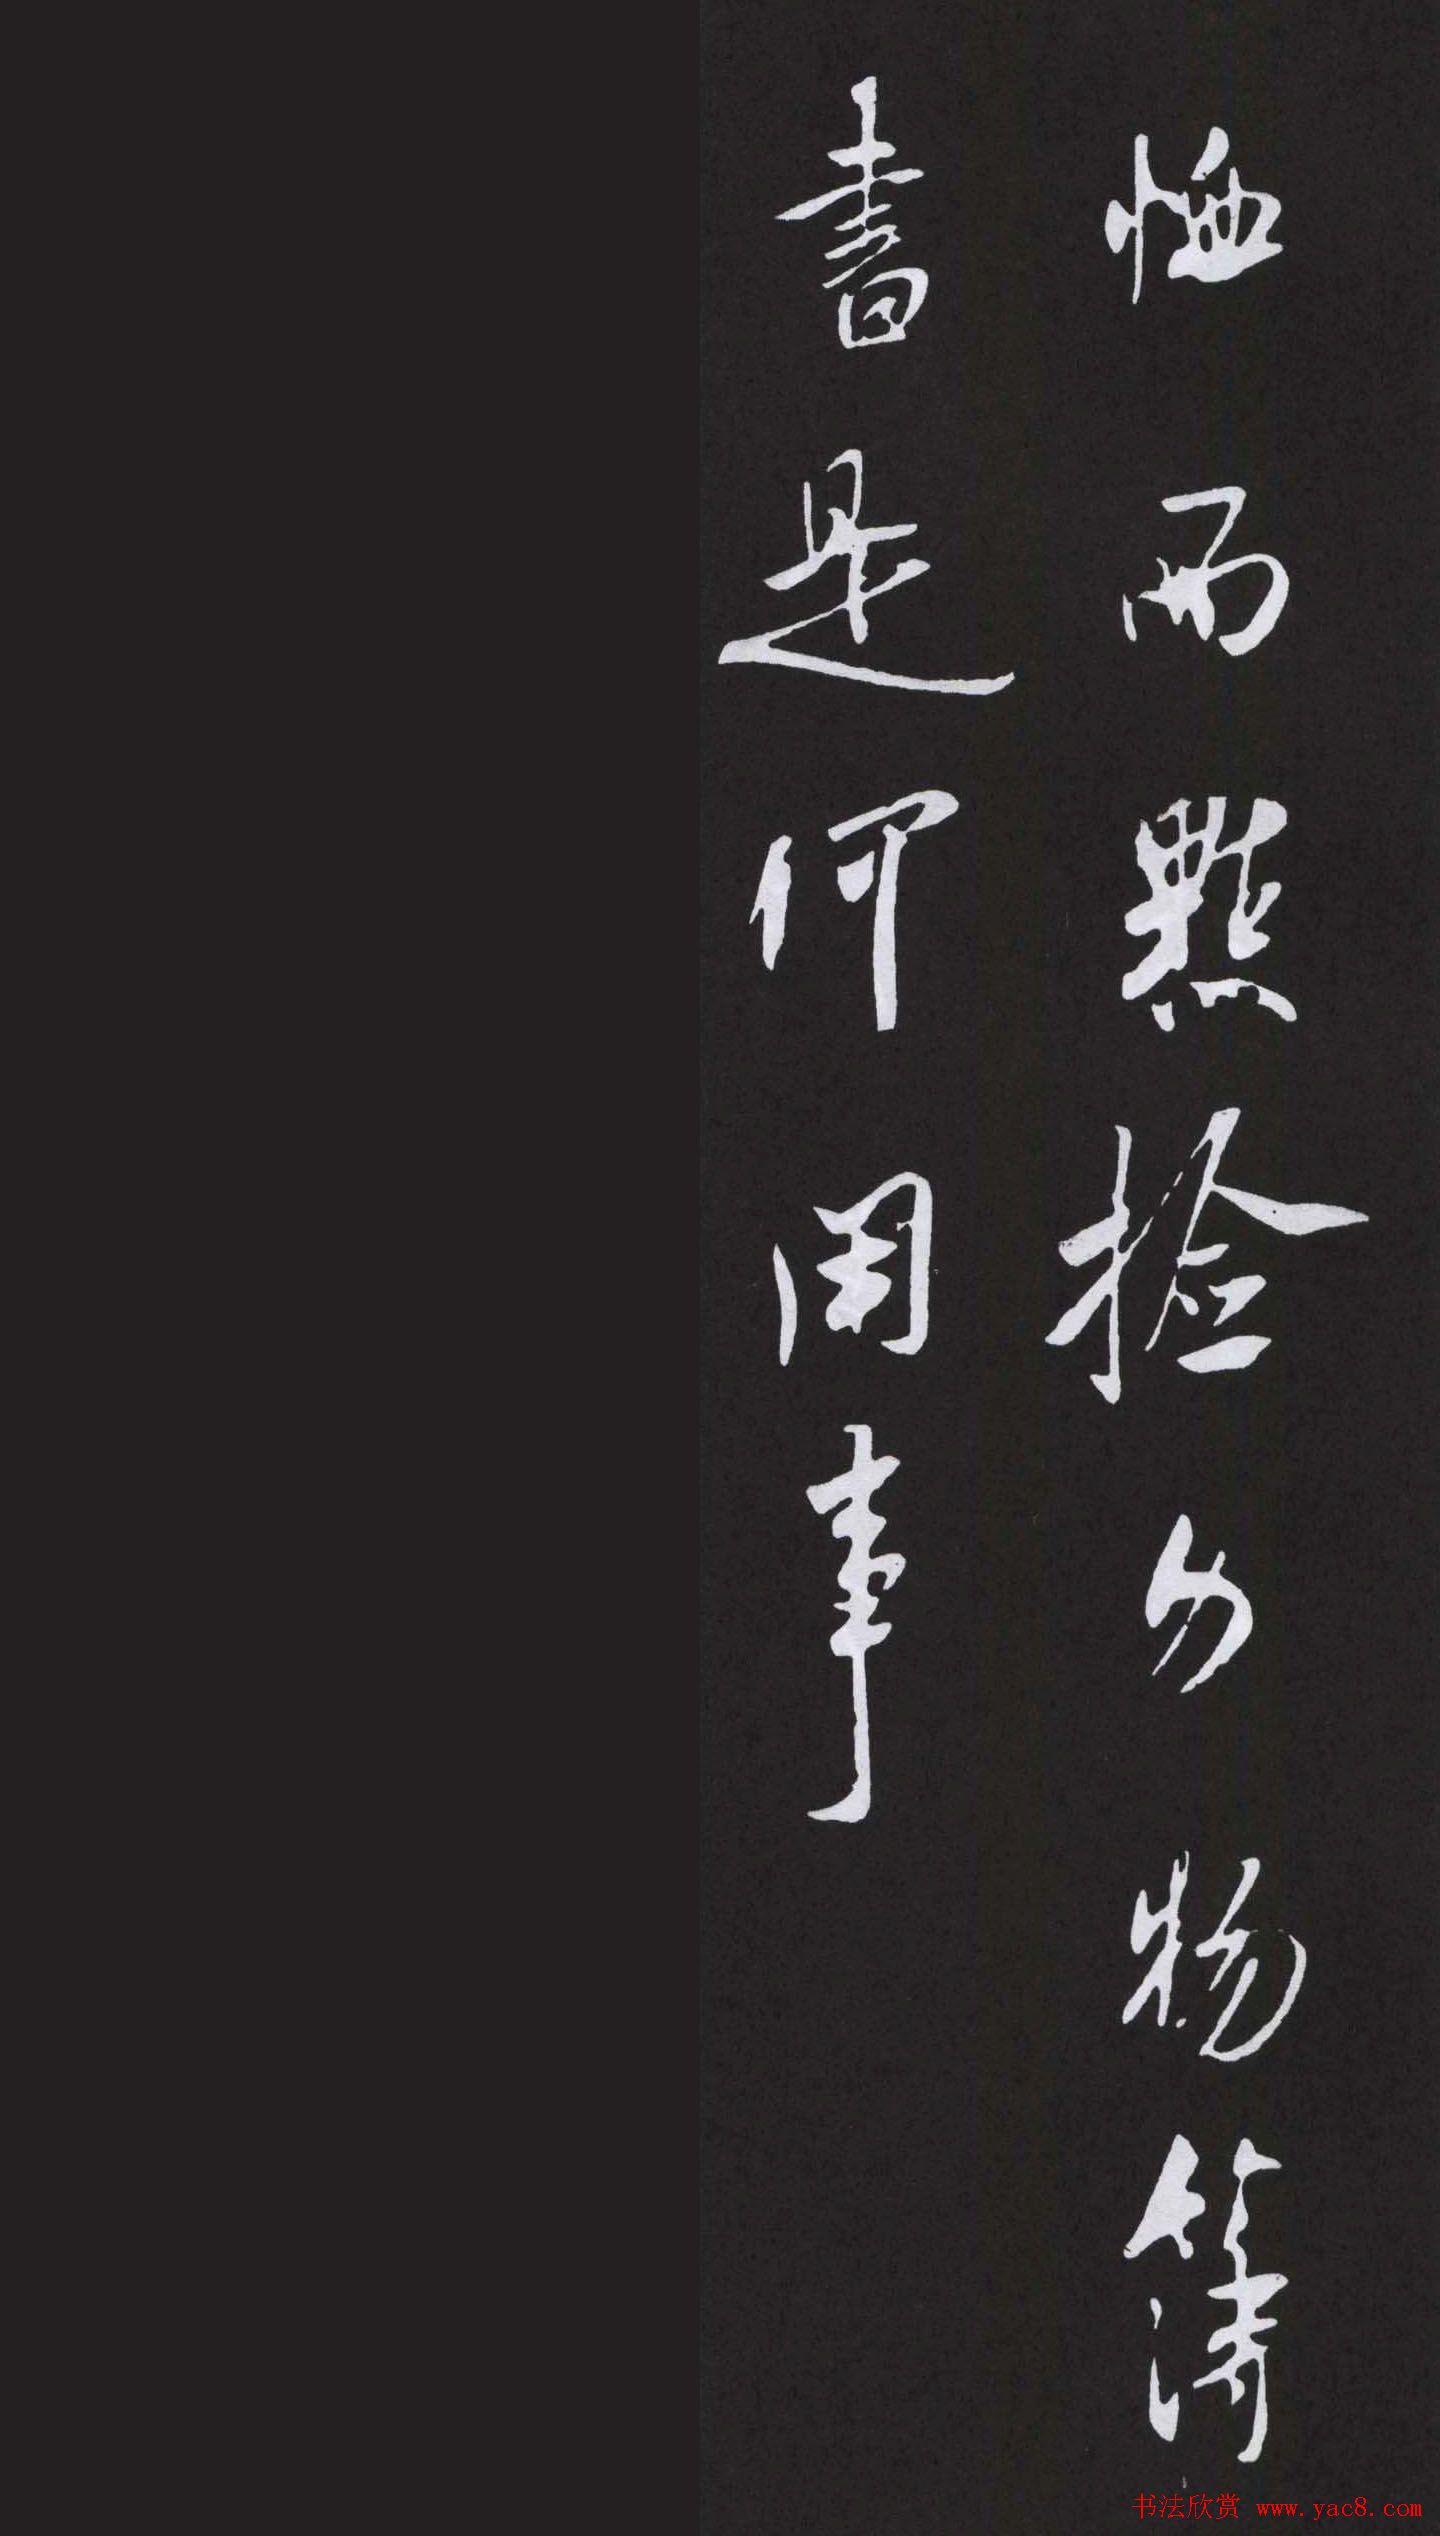 恤而點撿勿物簿
書是何用事
书法欣赏 www.yac8.com